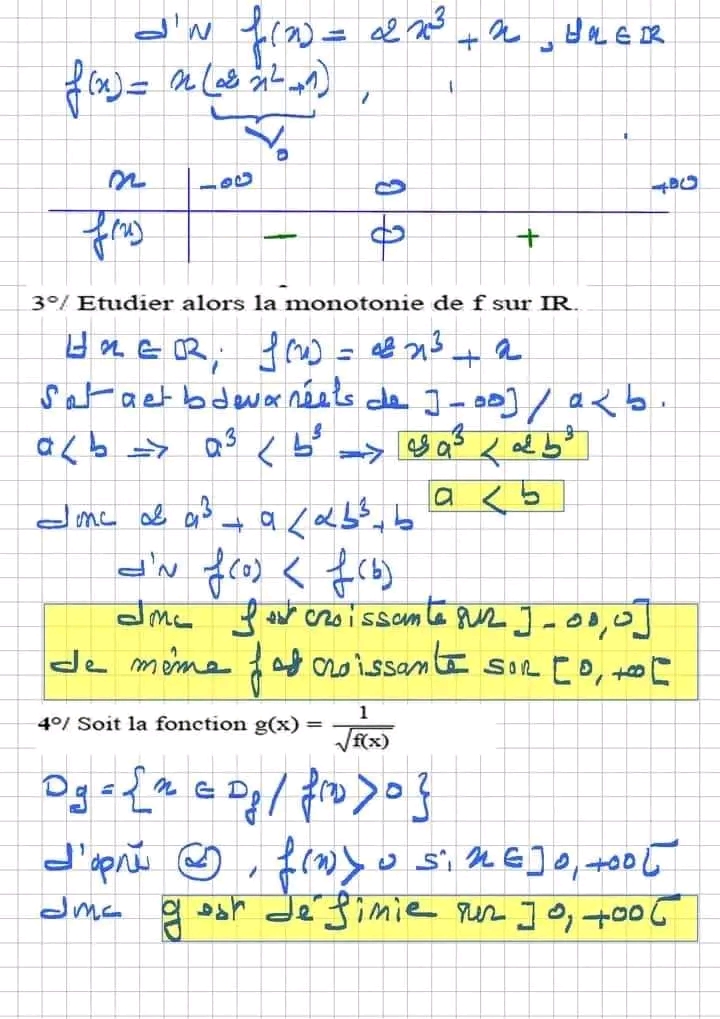 d'où f(x) = 2x³ + x, ∀x ∈ IR
f(x) = x(2x²+1),
>0
x -∞ 0 +∞
f(x) - 0 +
3°/ Etudier alors la monotonie de f sur IR.
∀x ∈ IR; f(x) = 2x³ + x
Soit a et b deux réels de ]-∞0] / a < b.
a < b ⇒ a³ < b³ ⇒ 2a³ < 2b³
a < b
donc 2a³ + a < 2b³ + b
d'où f(a) < f(b)
donc f est croissante sur ]-∞, 0]
de même f est croissante sur [0, +∞[
4°/ Soit la fonction g(x) = 1/√f(x)
Dg = {x ∈ Df / f(x) > 0}
d'après ②, f(x) > 0 si x ∈ ]0, +∞[
donc g est définie sur ]0, +∞[